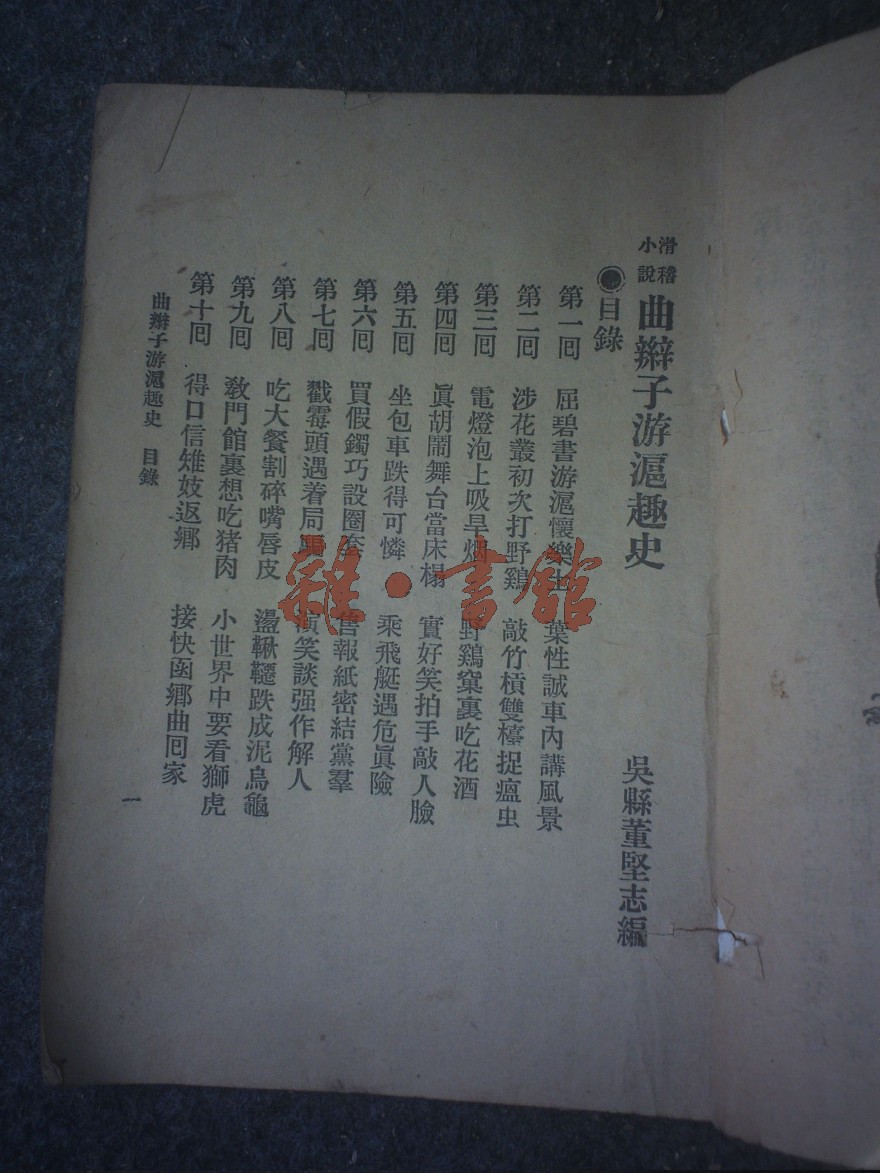 滑稽小說 曲辮子游滬趣史
吳縣董堅志編
●目錄
第一囘 屈碧書游滬懷樂土 葉性誠車內講風景
第二囘 涉花叢初次打野鷄 敲竹槓雙檯捉瘟虫
第三囘 電燈泡上吸旱烟 野鷄窠裏吃花酒
第四囘 眞胡鬧舞台當床榻 實好笑拍手敲人臉
第五囘 坐包車跌得可憐 乘飛艇遇危眞險
第六囘 買假鐲巧設圈套 售報紙密結黨羣
第七囘 戳霉頭遇着局騙 演笑談强作解人
第八囘 吃大餐割碎嘴唇皮 盪鞦韆跌成泥烏龜
第九囘 敎門館裏想吃猪肉 小世界中要看獅虎
第十囘 得口信雉妓返鄉 接快函鄉曲囘家
曲辮子游滬趣史 目錄
一
雜·書館